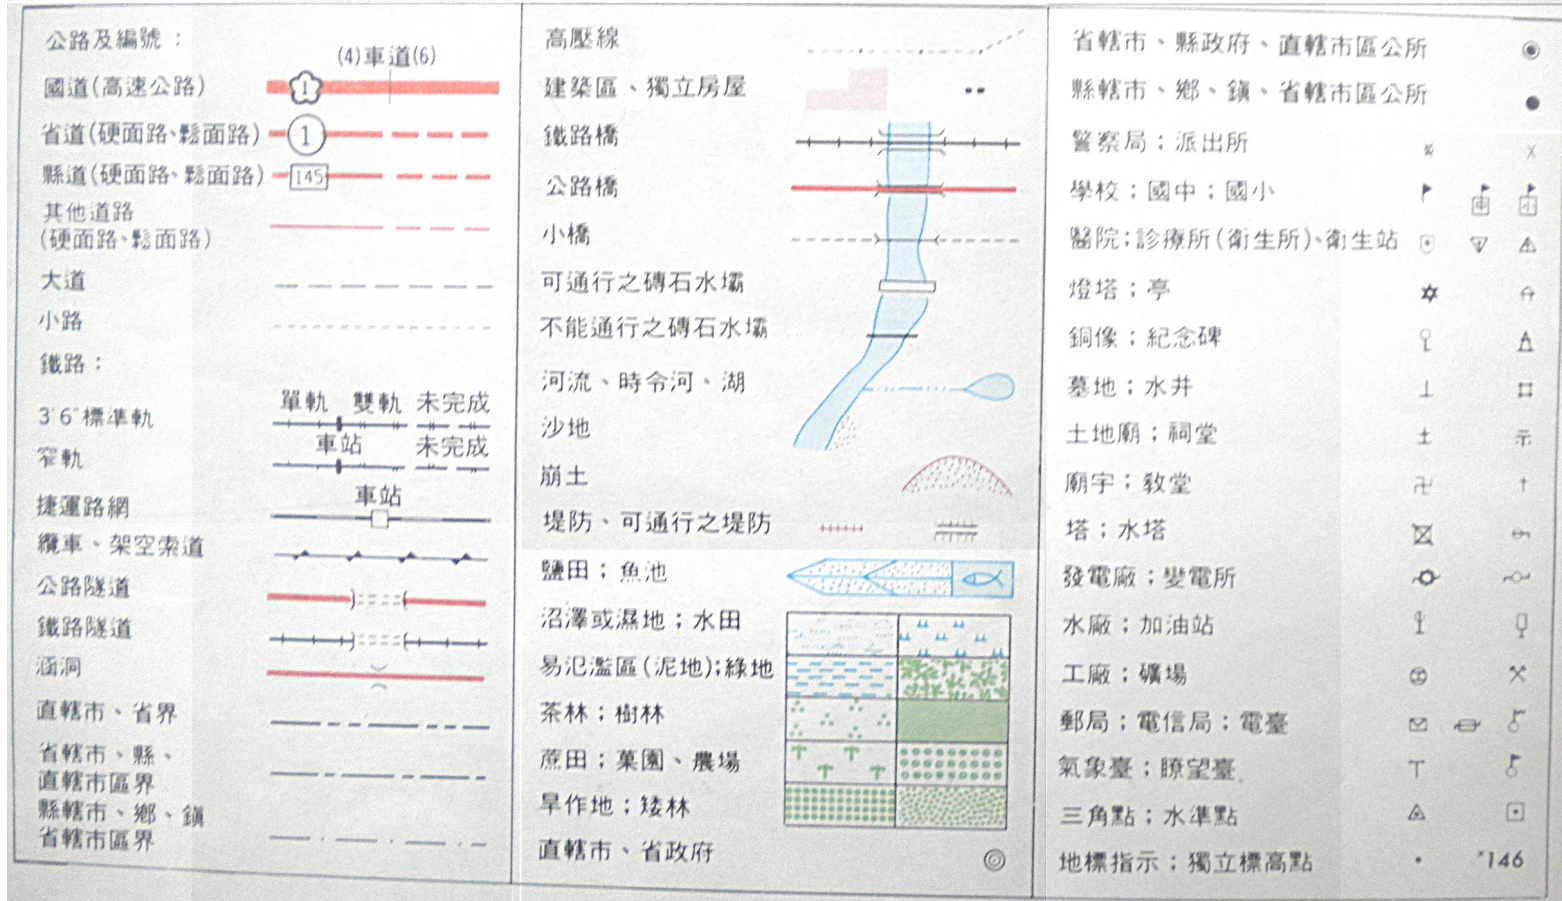 公路及編號：
(4)車道(6)
國道(高速公路)
1
省道(硬面路、鬆面路)
1
縣道(硬面路、鬆面路)
145
其他道路
(硬面路、鬆面路)
大道
小路
鐵路：
單軌 雙軌 未完成
3'6"標準軌
車站 未完成
窄軌
車站
捷運路網
纜車、架空索道
公路隧道
鐵路隧道
涵洞
直轄市、省界
省轄市、縣、
直轄市區界
縣轄市、鄉、鎮
省轄市區界
高壓線
建築區、獨立房屋
鐵路橋
公路橋
小橋
可通行之磚石水壩
不能通行之磚石水壩
河流、時令河、湖
沙地
崩土
堤防、可通行之堤防
鹽田；魚池
沼澤或濕地；水田
易氾濫區(泥地);綠地
茶林；樹林
蔗田；菓園、農場
旱作地；矮林
直轄市、省政府
省轄市、縣政府、直轄市區公所
縣轄市、鄉、鎮、省轄市區公所
警察局；派出所
學校；國中；國小
中 小
醫院；診療所(衛生所)、衛生站
燈塔；亭
銅像；紀念碑
墓地；水井
土地廟；祠堂
廟宇；教堂
塔；水塔
發電廠；變電所
水廠；加油站
工廠；礦場
郵局；電信局；電臺
氣象臺；瞭望臺
三角點；水準點
地標指示；獨立標高點
×146